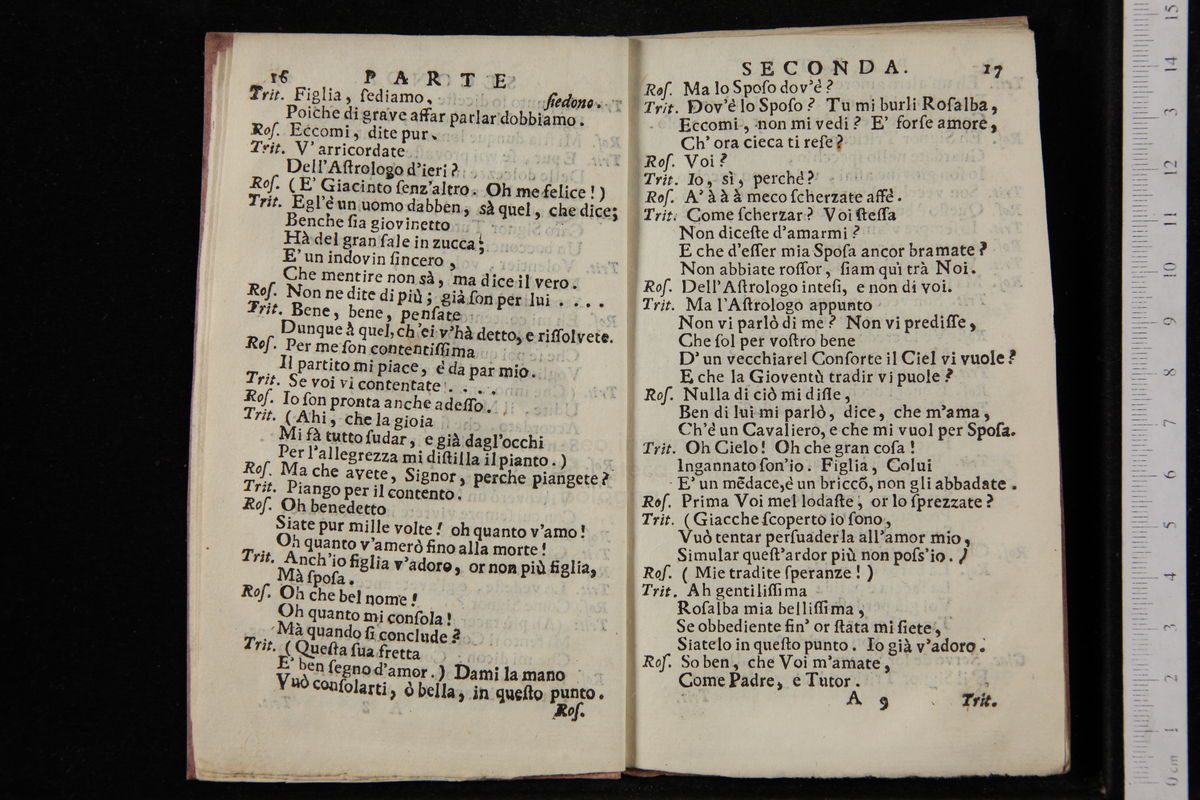 16 PARTE
Trit. Figlia, ſediamo. ſiedono.
Poiche di grave affar parlar dobbiamo.
Roſ. Eccomi, dite pur.
Trit. V' arricordate
Dell'Aſtrologo d'ieri?
Roſ. (E' Giacinto ſenz'altro. Oh me felice!)
Trit. Egl'è un uomo dabben, sà quel, che dice;
Benche ſia giovinetto
Hà del gran ſale in zucca;
E' un indovin ſincero,
Che mentire non sà, ma dice il vero.
Roſ. Non ne dite di più; già ſon per lui ....
Trit. Bene, bene, penſate
Dunque à quel, ch'ei v'hà detto, e riſſolvete.
Roſ. Per me ſon contentiſſima
Il partito mi piace, è da par mio.
Trit. Se voi vi contentate ....
Roſ. Io ſon pronta anche adeſſo.
Trit. (Ahi, che la gioia
Mi fà tutto ſudar, e già dagl'occhi
Per l'allegrezza mi diſtilla il pianto.)
Roſ. Ma che avete, Signor, perche piangete?
Trit. Piango per il contento.
Roſ. Oh benedetto
Siate pur mille volte! oh quanto v'amo!
Oh quanto v'amerò fino alla morte!
Trit. Anch'io figlia v'adoro, or non più figlia,
Mà ſpoſa.
Roſ. Oh che bel nome!
Oh quanto mi conſola!
Mà quando ſi conclude?
Trit. (Queſta ſua fretta
E' ben ſegno d'amor.) Dami la mano
Vuò conſolarti, ò bella, in queſto punto.
Roſ.
SECONDA. 17
Roſ. Ma lo Spoſo dov'è?
Trit. Dov'è lo Spoſo? Tu mi burli Roſalba,
Eccomi, non mi vedi? E' forſe amore,
Ch' ora cieca ti reſe?
Roſ. Voi?
Trit. Io, sì, perchè?
Roſ. A' à à à meco ſcherzate affè.
Trit. Come ſcherzar? Voi ſteſſa
Non diceſte d'amarmi?
E che d'eſſer mia Spoſa ancor bramate?
Non abbiate roſſor, ſiam quì trà Noi.
Roſ. Dell'Aſtrologo inteſi, e non di voi.
Trit. Ma l'Aſtrologo appunto
Non vi parlò di me? Non vi prediſſe,
Che ſol per voſtro bene
D' un vecchiarel Conſorte il Ciel vi vuole?
E che la Gioventù tradir vi puole?
Roſ. Nulla di ciò mi diſſe,
Ben di lui mi parlò, dice, che m'ama,
Ch'è un Cavaliero, e che mi vuol per Spoſa.
Trit. Oh Cielo! Oh che gran coſa!
Ingannato ſon'io. Figlia, Colui
E' un mẽdace, è un briccõ, non gli abbadate.
Roſ. Prima Voi mel lodaſte, or lo ſprezzate?
Trit. (Giacche ſcoperto io ſono,
Vuò tentar perſuaderla all'amor mio,
Simular queſt'ardor più non poſs'io.)
Roſ. (Mie tradite ſperanze!)
Trit. Ah gentiliſſima
Roſalba mia belliſſima,
Se obbediente fin' or ſtata mi ſiete,
Siatelo in queſto punto. Io già v'adoro.
Roſ. So ben, che Voi m'amate,
Come Padre, e Tutor.
A 9 Trit.
0 cm 1 2 3 4 5 6 7 8 9 10 11 12 13 14 15